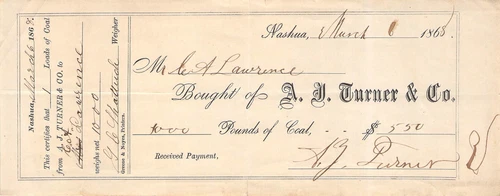 Nashua, March 6 1868
This certifies that 1 Loads of Coal
from A. J. TURNER & CO. to
Lawrence
weighs net 1000
Weigher
Nashua, March 6 1868
Mr C A Lawrence
Bought of A. J. Turner & Co.
1000 Pounds of Coal, - - $ 5 50
Received Payment,
A. J. Turner